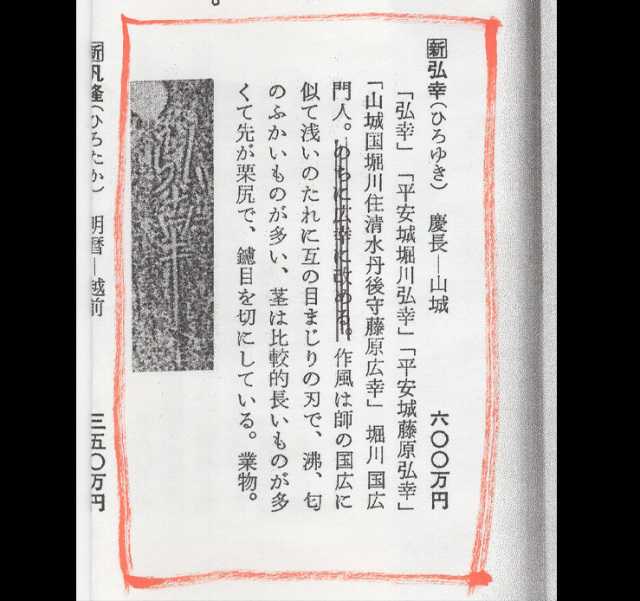 新 弘幸（ひろゆき）　慶長―山城　六〇〇万円
「弘幸」「平安城堀川弘幸」「平安城藤原弘幸」
「山城国堀川住清水丹後守藤原広幸」堀川国広
門人。のちに広幸に改める。作風は師の国広に
似て浅いのたれに互の目まじりの刃で、沸、匂
のふかいものが多い、茎は比較的長いものが多
くて先が栗尻で、鑢目を切にしている。業物。
弘幸
新 汎隆（ひろたか）　明暦―越前　三五〇万円